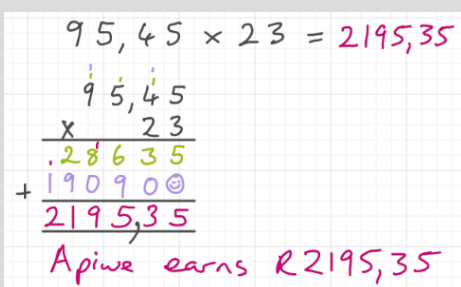 95,45 × 23 = 2195,35
95,45
× 23
28635
+ 190900
2195,35
Apiwe earns R2195,35